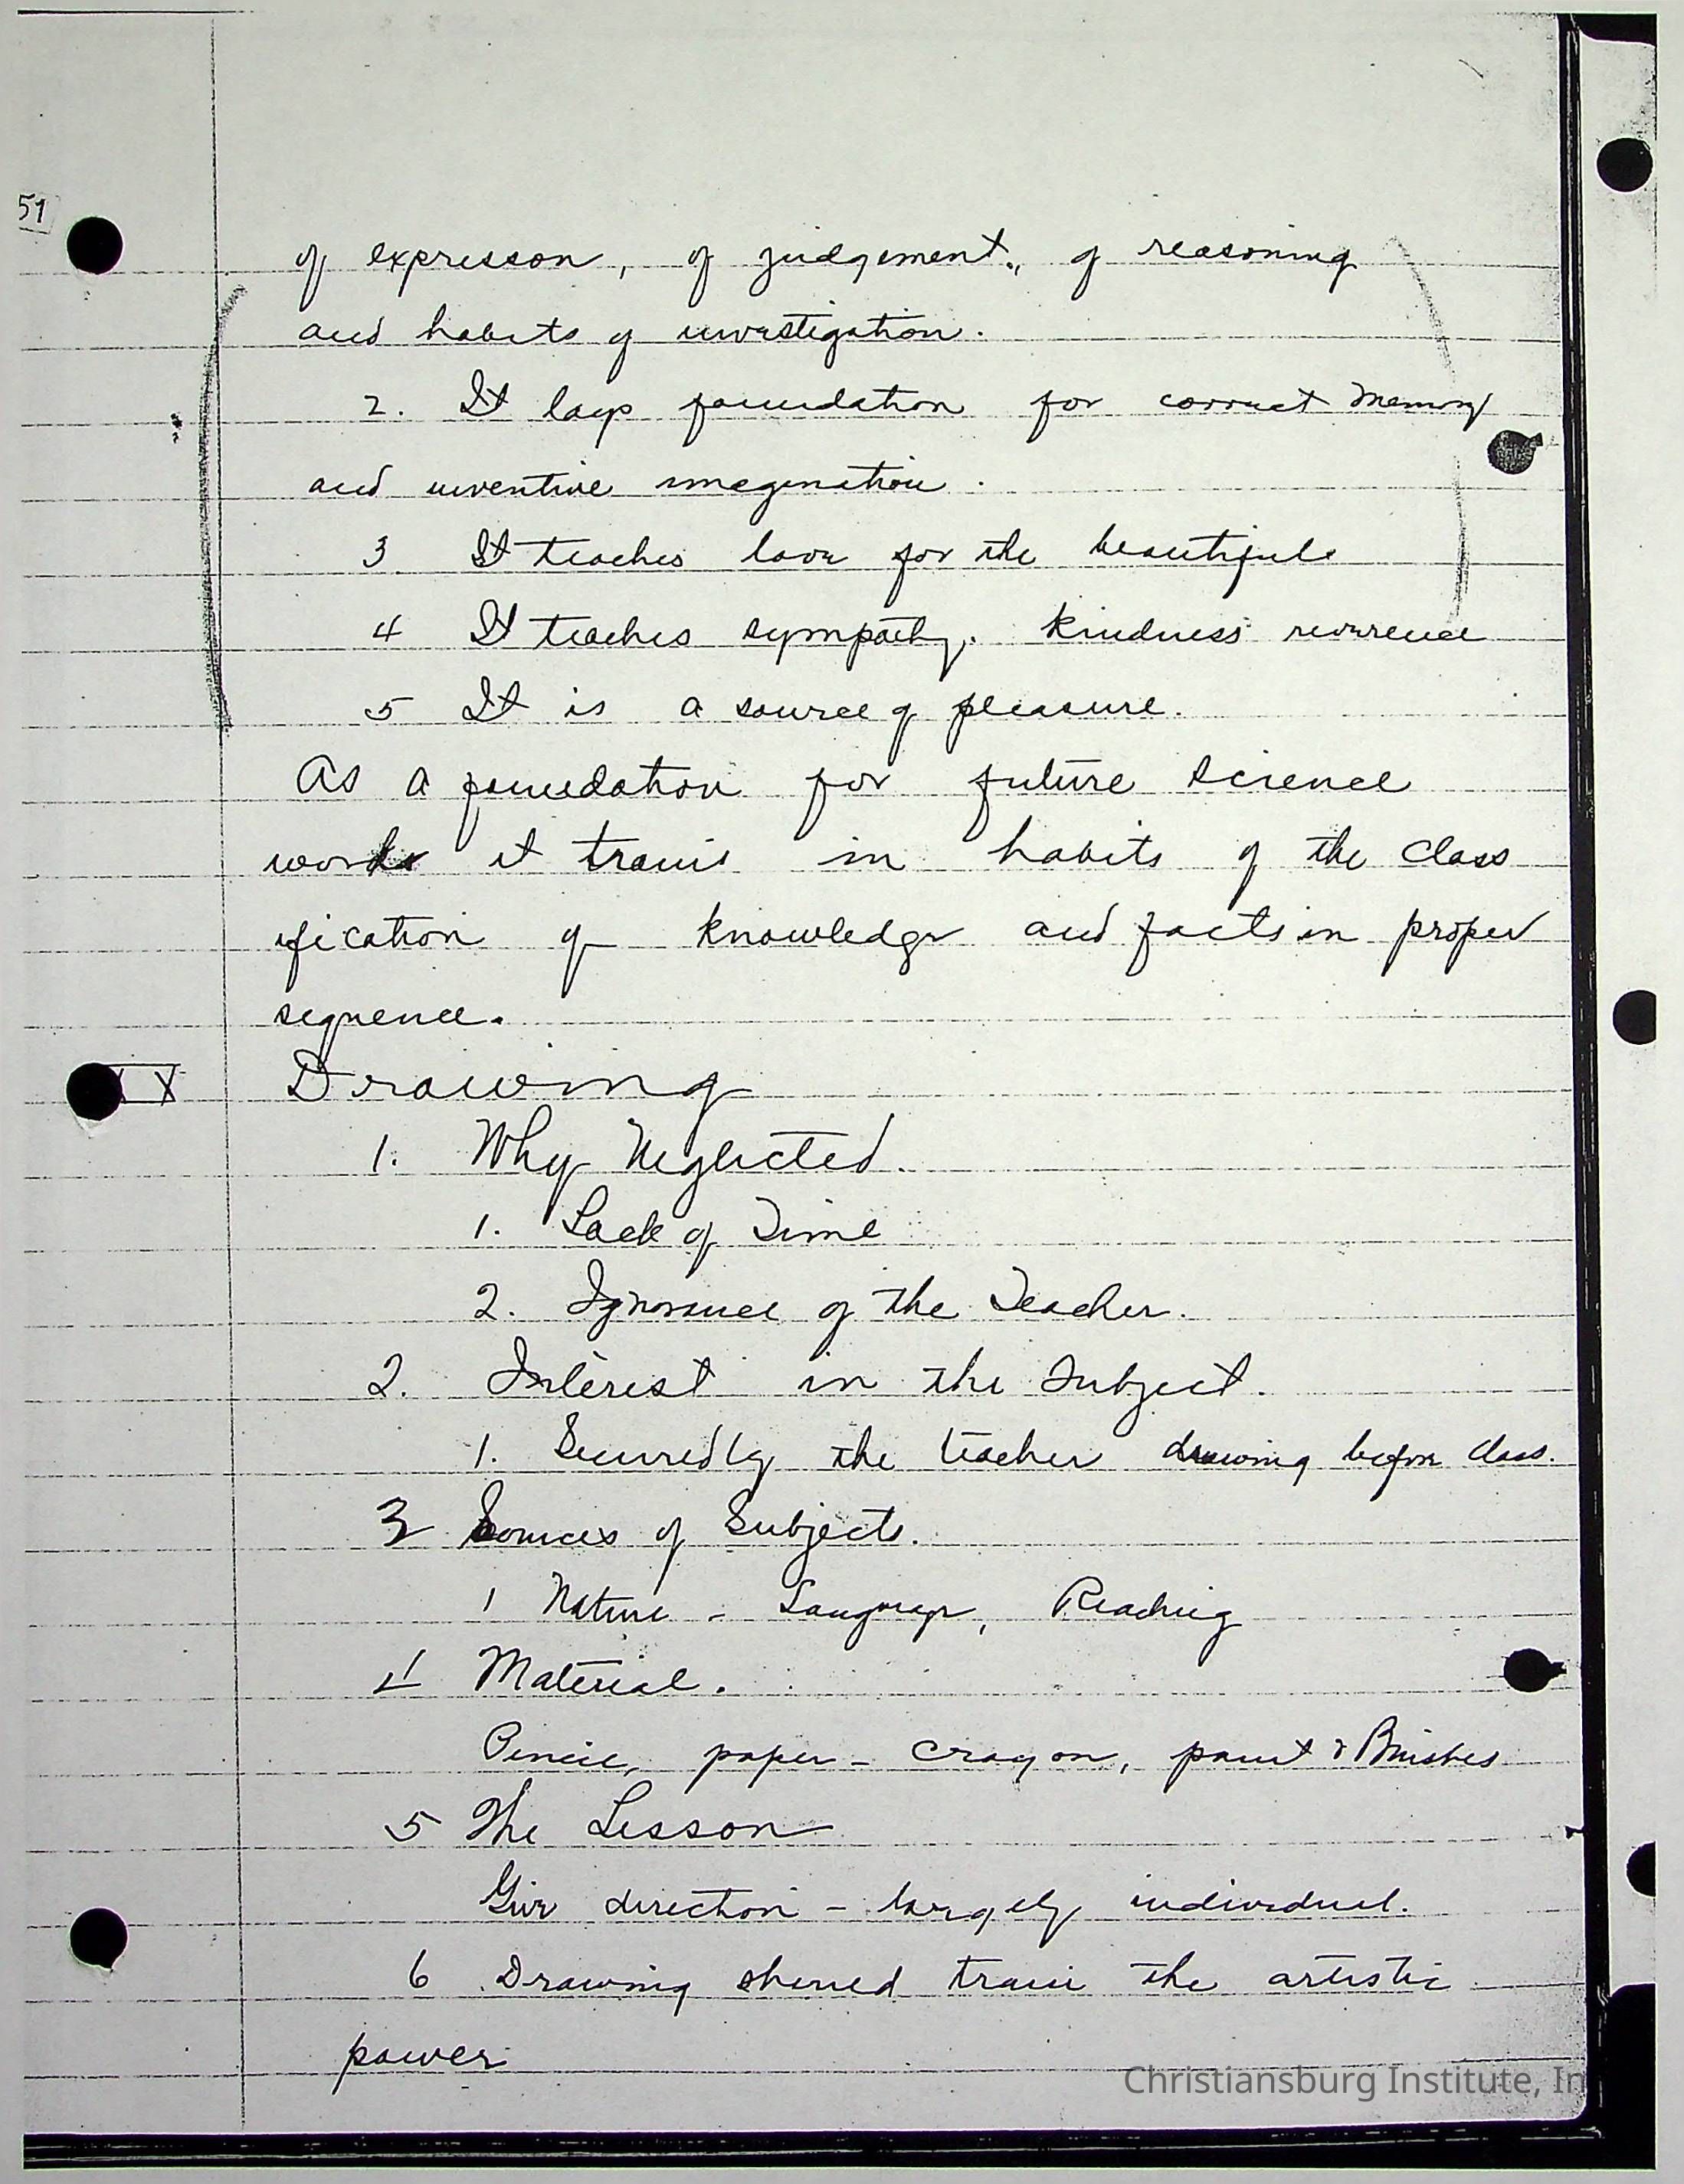 51
of expresson, of judgement, of reasoning
and habits of investigation.
2. It lays foundation for correct memory
and inventive imagination.
3 It teaches love for the beautiful
4 It teaches sympathy. kindness reverence
5 It is a source of pleasure.
As a foundation for future science
words it trains in habits of the class
ification of knowledge and facts in proper
sequence.
X Drawing
1. Why Neglected.
1. Lack of Time
2. Ignorance of the Teacher.
2. Interest in the Subject.
1. Secured by the teacher drawing before class.
3 Sources of Subjects.
1 Nature - Language, Reading
4 Material.
Pencil, paper - crayon, paint & Brushes
5 The Lesson
Give direction - largely individual.
6 Drawing should train the artistic
power
Christiansburg Institute, In